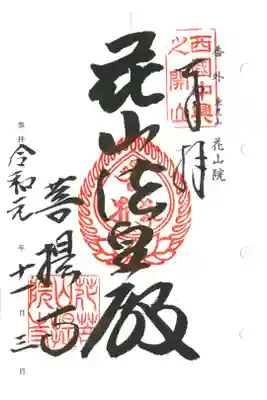 番外 東光山 花山院
奉拝
西國中興
之開山
花山法皇殿
菩提寺
花山院
菩提寺
参拝 令和元年十一月三日